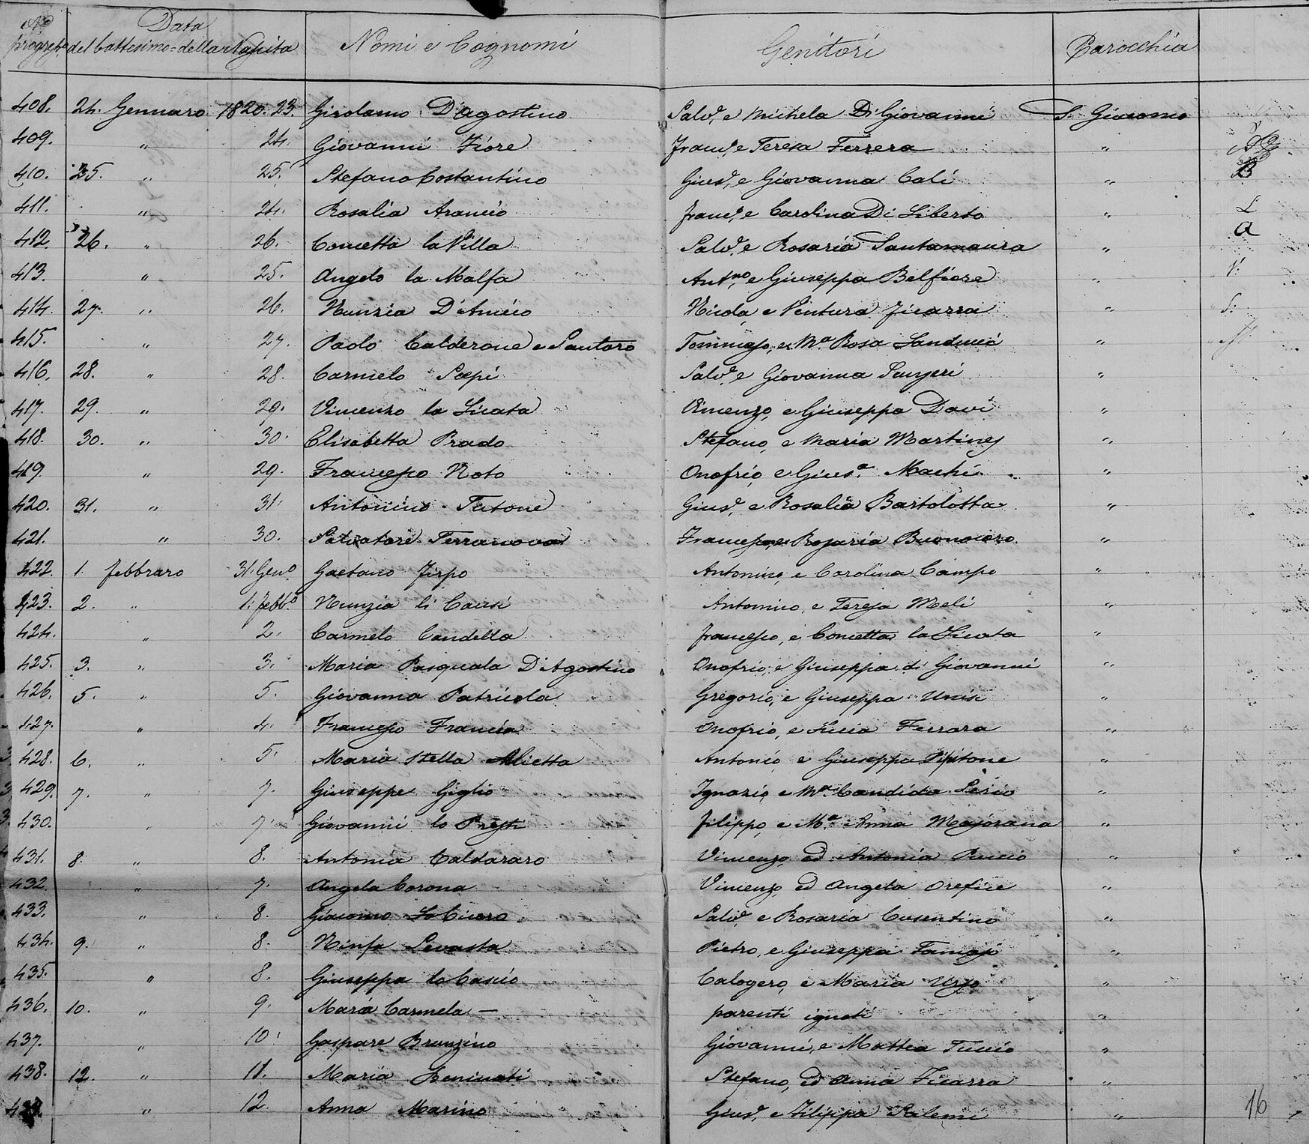 No progress. Data del battesimo = della nascita Nomi e Cognomi Genitori Parocchia
408. 24. Gennaro 1820. 23. Girolamo D'agostino Salv.e e Michela Di Giovanni S. Giacomo
409. " 24. Giovanni Fiore Franc.o e Teresa Ferrera "
410. 25. " 25. Stefano Costantino Gius.e e Giovanna Calì " B
411. " 24. Rosalia Arancio franc.o e Carolina Di Liberto " L
412. 26. " 26. Concetta la Villa Salv.e e Rosaria Santamaura " a
413. " 25. Angelo la Malfa Ant.no e Giuseppa Belfiore "
414. 27. " 26. Nunzia D'Amico Nicola, e Ventura Ficarra "
415. " 27. Paolo Calderone e Santoro Tommaso, e M.a Rosa "
416. 28. " 28. Carmelo Pepi Salv.e e Giovanna "
417. 29. " 29. Vincenzo la Licata Vincenzo, e Giuseppa Davì "
418. 30. " 30. Elisabetta Prado Stefano, e Maria Martines "
419. " 29. Francesco Noto Onofrio e Gius.a Machì "
420. 31. " 31. Antonino Tatone Gius.e e Rosalia Bartolotta "
421. " 30. Salvatore Terranova Francesco, e Rosaria "
422. 1. febbraro 31. Gen.o Gaetano Antonino e Carolina Campo "
423. 2. " 1. febb.o Nunzia li Causi Antonino, e Teresa Meli "
424. " 2. Carmelo Candella francesco, e Concetta la Licata "
425. 3. " 3. Maria Pasquala D'Agostino Onofrio, e Giuseppa di Giovanni "
426. 5 " 5. Giovanna Patricola Gregorio, e Giuseppa "
427. " 4. Francesco Francia Onofrio, e Lucia Ferrara "
428. 6. " 5. Maria Stella Alietta Antonio, e Giuseppa Pipitone "
429. 7. " 7. Giuseppe Giglio Ignazio, e M.a Candida "
430. " 7. Giovanni lo Presti filippo, e M.a Anna Majorana "
431. 8. " 8. Antonia Caldararo Vincenzo, ed Antonia Puccio "
432. " 7. Angela Corona Vincenzo, ed Angela Orefice "
433. " 8. Giacomo Lo Cicero Salv.e e Rosaria Cusentino "
434. 9. " 8. Ninfa Levanta Pietro, e Giuseppa "
435. " 8. Giuseppa lo Cascio Calogero, e Maria Urzo "
436. 10. " 9. Maria Carmela — parenti ignoti "
437. " 10. Gaspare Brunzino Giovanni, e Mattea "
438. 12. " 11. Maria Beninati Stefano, ed Anna Ficarra "
439. " 12. Anna Marino Gius.e e Filippa Salemi " 16